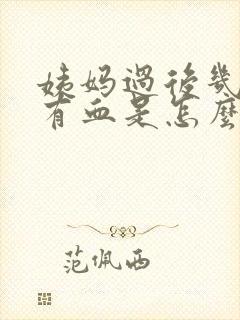 姨妈过后几
有血是怎麼
范佩西